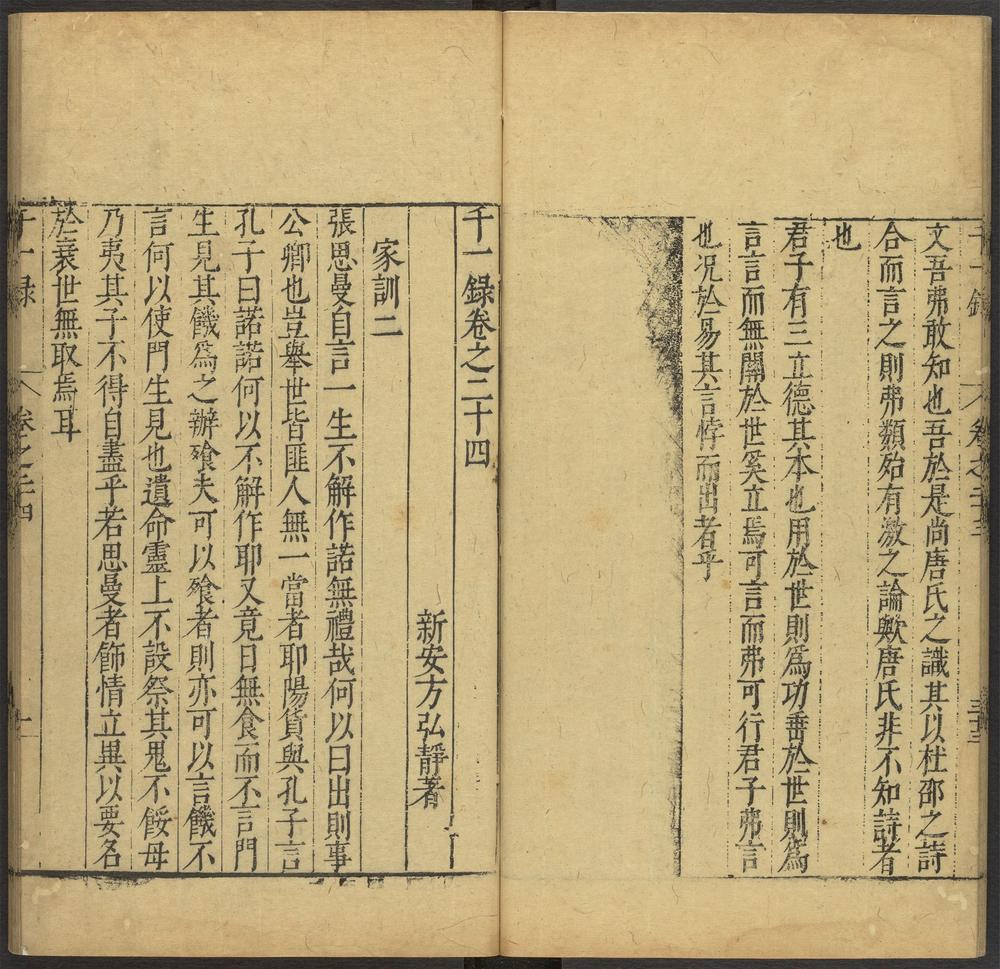 千一錄 卷之二十三 三十三
文吾弗敢知也吾於是尚唐氏之識其以杜邵之詩
合而言之則弗類殆有激之論歟唐氏非不知詩者
也
君子有三立德其本也用於世則爲功垂於世則爲
言言而無關於世奚立焉可言而弗可行君子弗言
也況於易其言悖而出者乎
千一錄卷之二十四
新安方弘靜著
家訓二
張思曼自言一生不解作諾無禮哉何以曰出則事
公卿也豈舉世皆匪人無一當者耶陽貨與孔子言
孔子曰諾諾何以不解作耶又竟日無食而不言門
生見其饑爲之辦飱夫可以飱者則亦可以言饑不
言何以使門生見也遺命靈上不設祭其鬼不餒毋
乃夷其子不得自盡乎若思曼者飾情立異以要名
於衰世無取焉耳
千一錄 卷之二十四 一